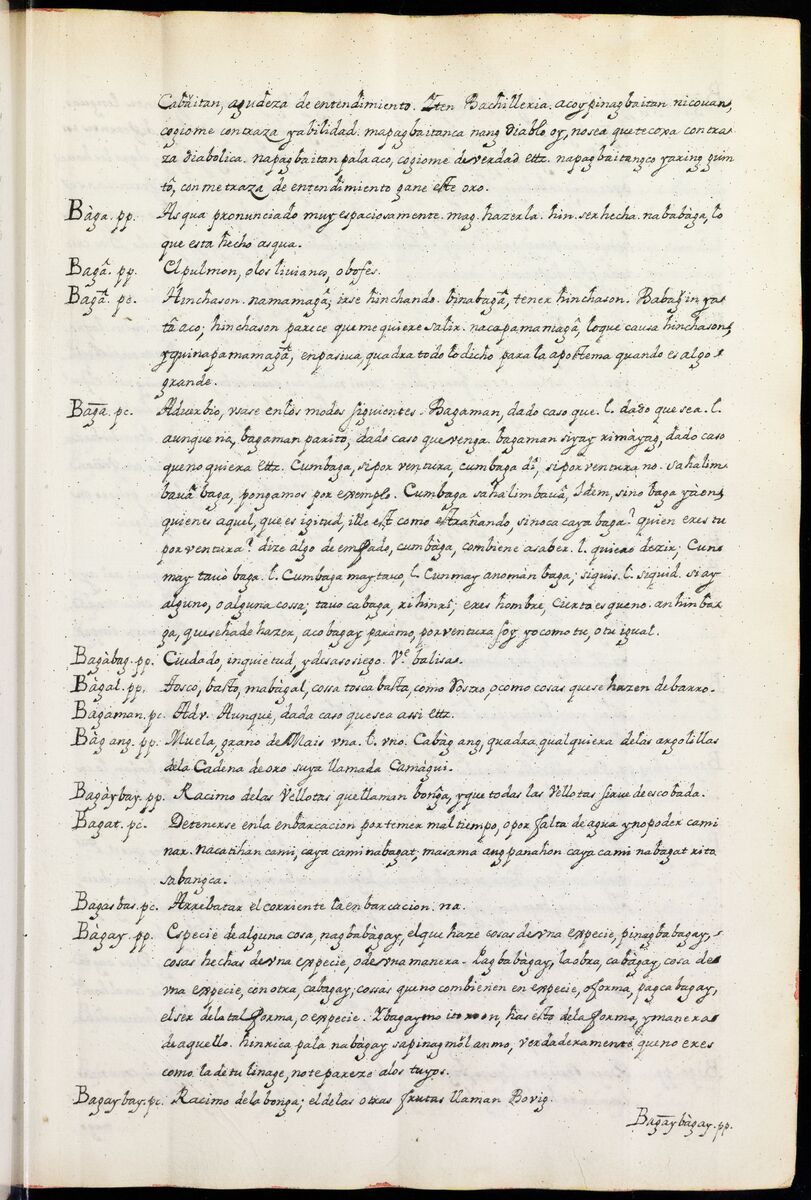 Cabaitan, agudeza de entendimiento. Yten Bachilleria. acoy pinagbaitan nicouan,
cogiome con traza y abilidad. mapagbaitanca nang diablo oy, no sea que te coxa con tra-
za diabolica. napagbaitan pala aco, cogiome de verdad ettz. napagbaitangco yaring guin
tô, con me traza de entendimiento gane este oro.
Bàga. pp. Asqua pronunciado muy espaciosamente. mag. hazerla. hin. ser hecha. nababàga, lo
que esta hecho asqua.
Bagâ. pp. El pulmon, o los livianos, o bofes.
Bag̃a. pc. Hinchason. namamag̃a; irse hinchando. binabag̃a, tener hinchason. Babag̃in ya-
tâ aco; hinchason parece que me quiere salir. nacapamamag̃a, lo que causa hinchason,
yquinapamamag̃a, en pasiva, quadra todo lo dicho para la apostema quando es algo
grande.
Bag̃a. pc. Adverbio, vsase en los modos siguientes. Bagaman, dado caso que. l. dado que sea. l.
aunque na, bagaman parito, dado caso que venga. bagaman siyay rimàyag, dado caso
que no quiera ettz. Cumbaga, si por ventura, cumbaga dî, si por ventura no. sa halim-
bauâ baga, pongamos por exemplo. Cumbaga sa halimbauâ, Idem, sino baga yàon,
quien es aquel, que es igitud, ille est como estrañando, sino ca caya baga? quien eres tu
por ventura? dize algo de enfado, cumbàga, combiene a saber. l. quiero dezir; Cun
may tavò baga. l. Cumbaga may tavo, l. Cun may anomàn baga; siquis. l. siquid. si ay
alguno, o alguna cossa; tavo ca baga, ri hindî; eres hombre, cierta es que no. anhin ba-
ga, que se ha de hazer, aco bagay paramo, por ventura soy yo como tu, o tu igual.
Bagàbag. pp. Ciudado, inquietud, y desasosiego. Vᵉ. balisa.
Bàgal. pp. Tosco, basto, mabàgal, cossa tosca basta, como Rostro, o como cosas que se hazen de barro.
Bàgaman. pc. Adv. Aunque, dada caso que sea assi ettz.
Bàg ang. pp. Muela, grano de Mais vna. l. vno. Cabàg ang, quadra qualquiera de las argolillas
de la Cadena de oro suya llamada Camàgui.
Bagàybay. pp. Racimo de las Vellotas que llaman bong̃a, y que todas las Vellotas sirue de escobada.
Bagat. pc. Detenerse en la enbarcacion por temer mal tiempo, o por falta de agua y no poder cami
nar. nacatihan cami, caya cami nabagat, masama ang panahon caya cami nabagat rito
sabangca.
Bagasbas. pc. Arrebatar el corriente la enbarcacion. na.
Bàgay. pp. Especie de alguna cosa, nagbabàgay, el que haze cosas de vna especie, pinagbabagay,
cosas hechas de vna especie, o de vna manera. Pagbabàgay, la obra, cabàgay, cosa de
vna especie, con otra, cabagay, cossas que no combienen en especie, o forma, pagcabagay,
el ser de la tal forma, o especie. Ybagay mo ito roon, has esto de la forma, y manera
de aquello. hinrica pala nabàgay sa pinagmôlanmo, verdaderamente que no eres
como la de tu linage, no te pareze a los tuyos.
Bagaybay. pc. Racimo de la bonga; el de las otras frutas llaman Bovig.
Bag̃aybàgay. pp.